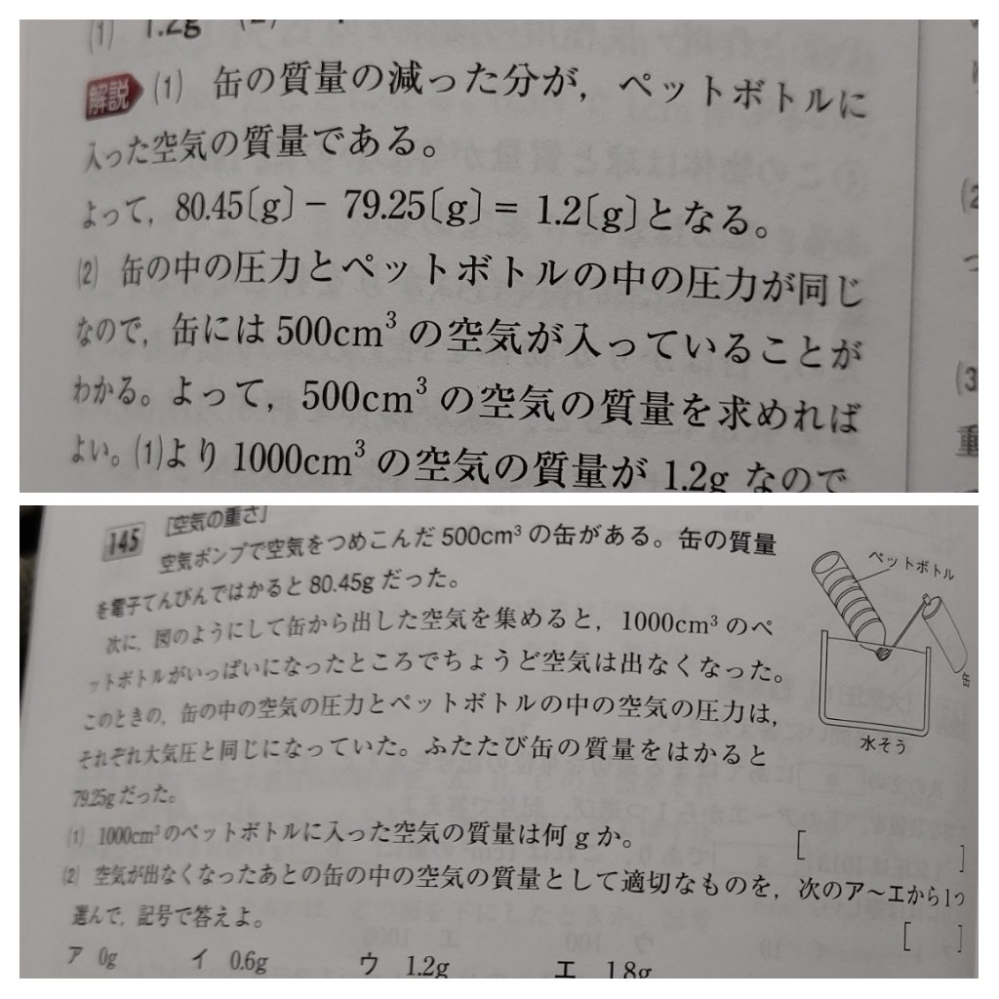 (1) 1.2g (2)
解説 (1) 缶の質量の減った分が，ペットボトルに
入った空気の質量である。
よって，80.45〔g〕− 79.25〔g〕= 1.2〔g〕となる。
(2) 缶の中の圧力とペットボトルの中の圧力が同じ
なので，缶には 500cm³ の空気が入っていることが
わかる。よって，500cm³ の空気の質量を求めれば
よい。(1)より 1000cm³ の空気の質量が 1.2g なので
145 [空気の重さ]
空気ポンプで空気をつめこんだ 500cm³ の缶がある。缶の質量
を電子てんびんではかると 80.45g だった。
次に，図のようにして缶から出した空気を集めると，1000cm³ のペ
ットボトルがいっぱいになったところでちょうど空気は出なくなった。
このときの，缶の中の空気の圧力とペットボトルの中の空気の圧力は，
それぞれ大気圧と同じになっていた。ふたたび缶の質量をはかると
79.25g だった。
ペットボトル
缶
水そう
(1) 1000cm³ のペットボトルに入った空気の質量は何 g か。 [ ]
(2) 空気が出なくなったあとの缶の中の空気の質量として適切なものを，次のア〜エから1つ
選んで，記号で答えよ。 [ ]
ア 0g イ 0.6g ウ 1.2g エ 1.8g